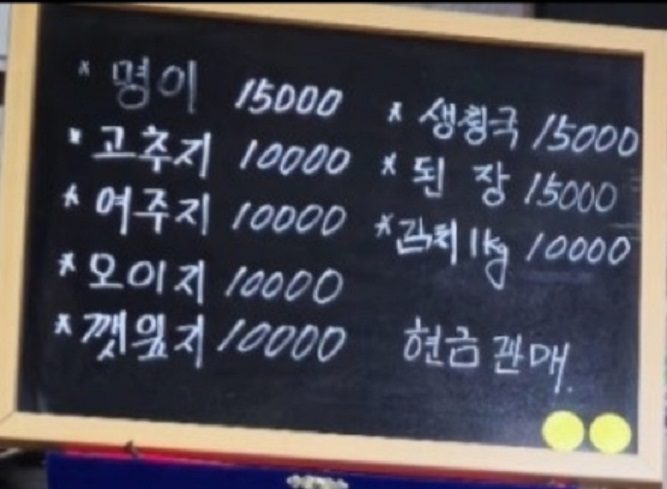 * 명이 15000
* 고추지 10000
* 여주지 10000
* 오이지 10000
* 깻잎지 10000
* 생청국 15000
* 된장 15000
* 김치 1kg 10000
현금판매.